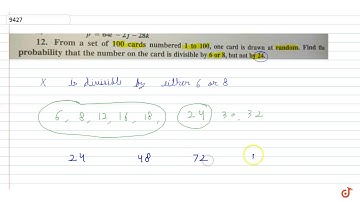 9427
12. From a set of 100 cards numbered 1 to 100, one card is drawn at random. Find the
probability that the number on the card is divisible by 6 or 8, but not by 24.
X is divisible by either 6 or 8
6, 8, 12, 16, 18, 24 30, 32
24 48 72